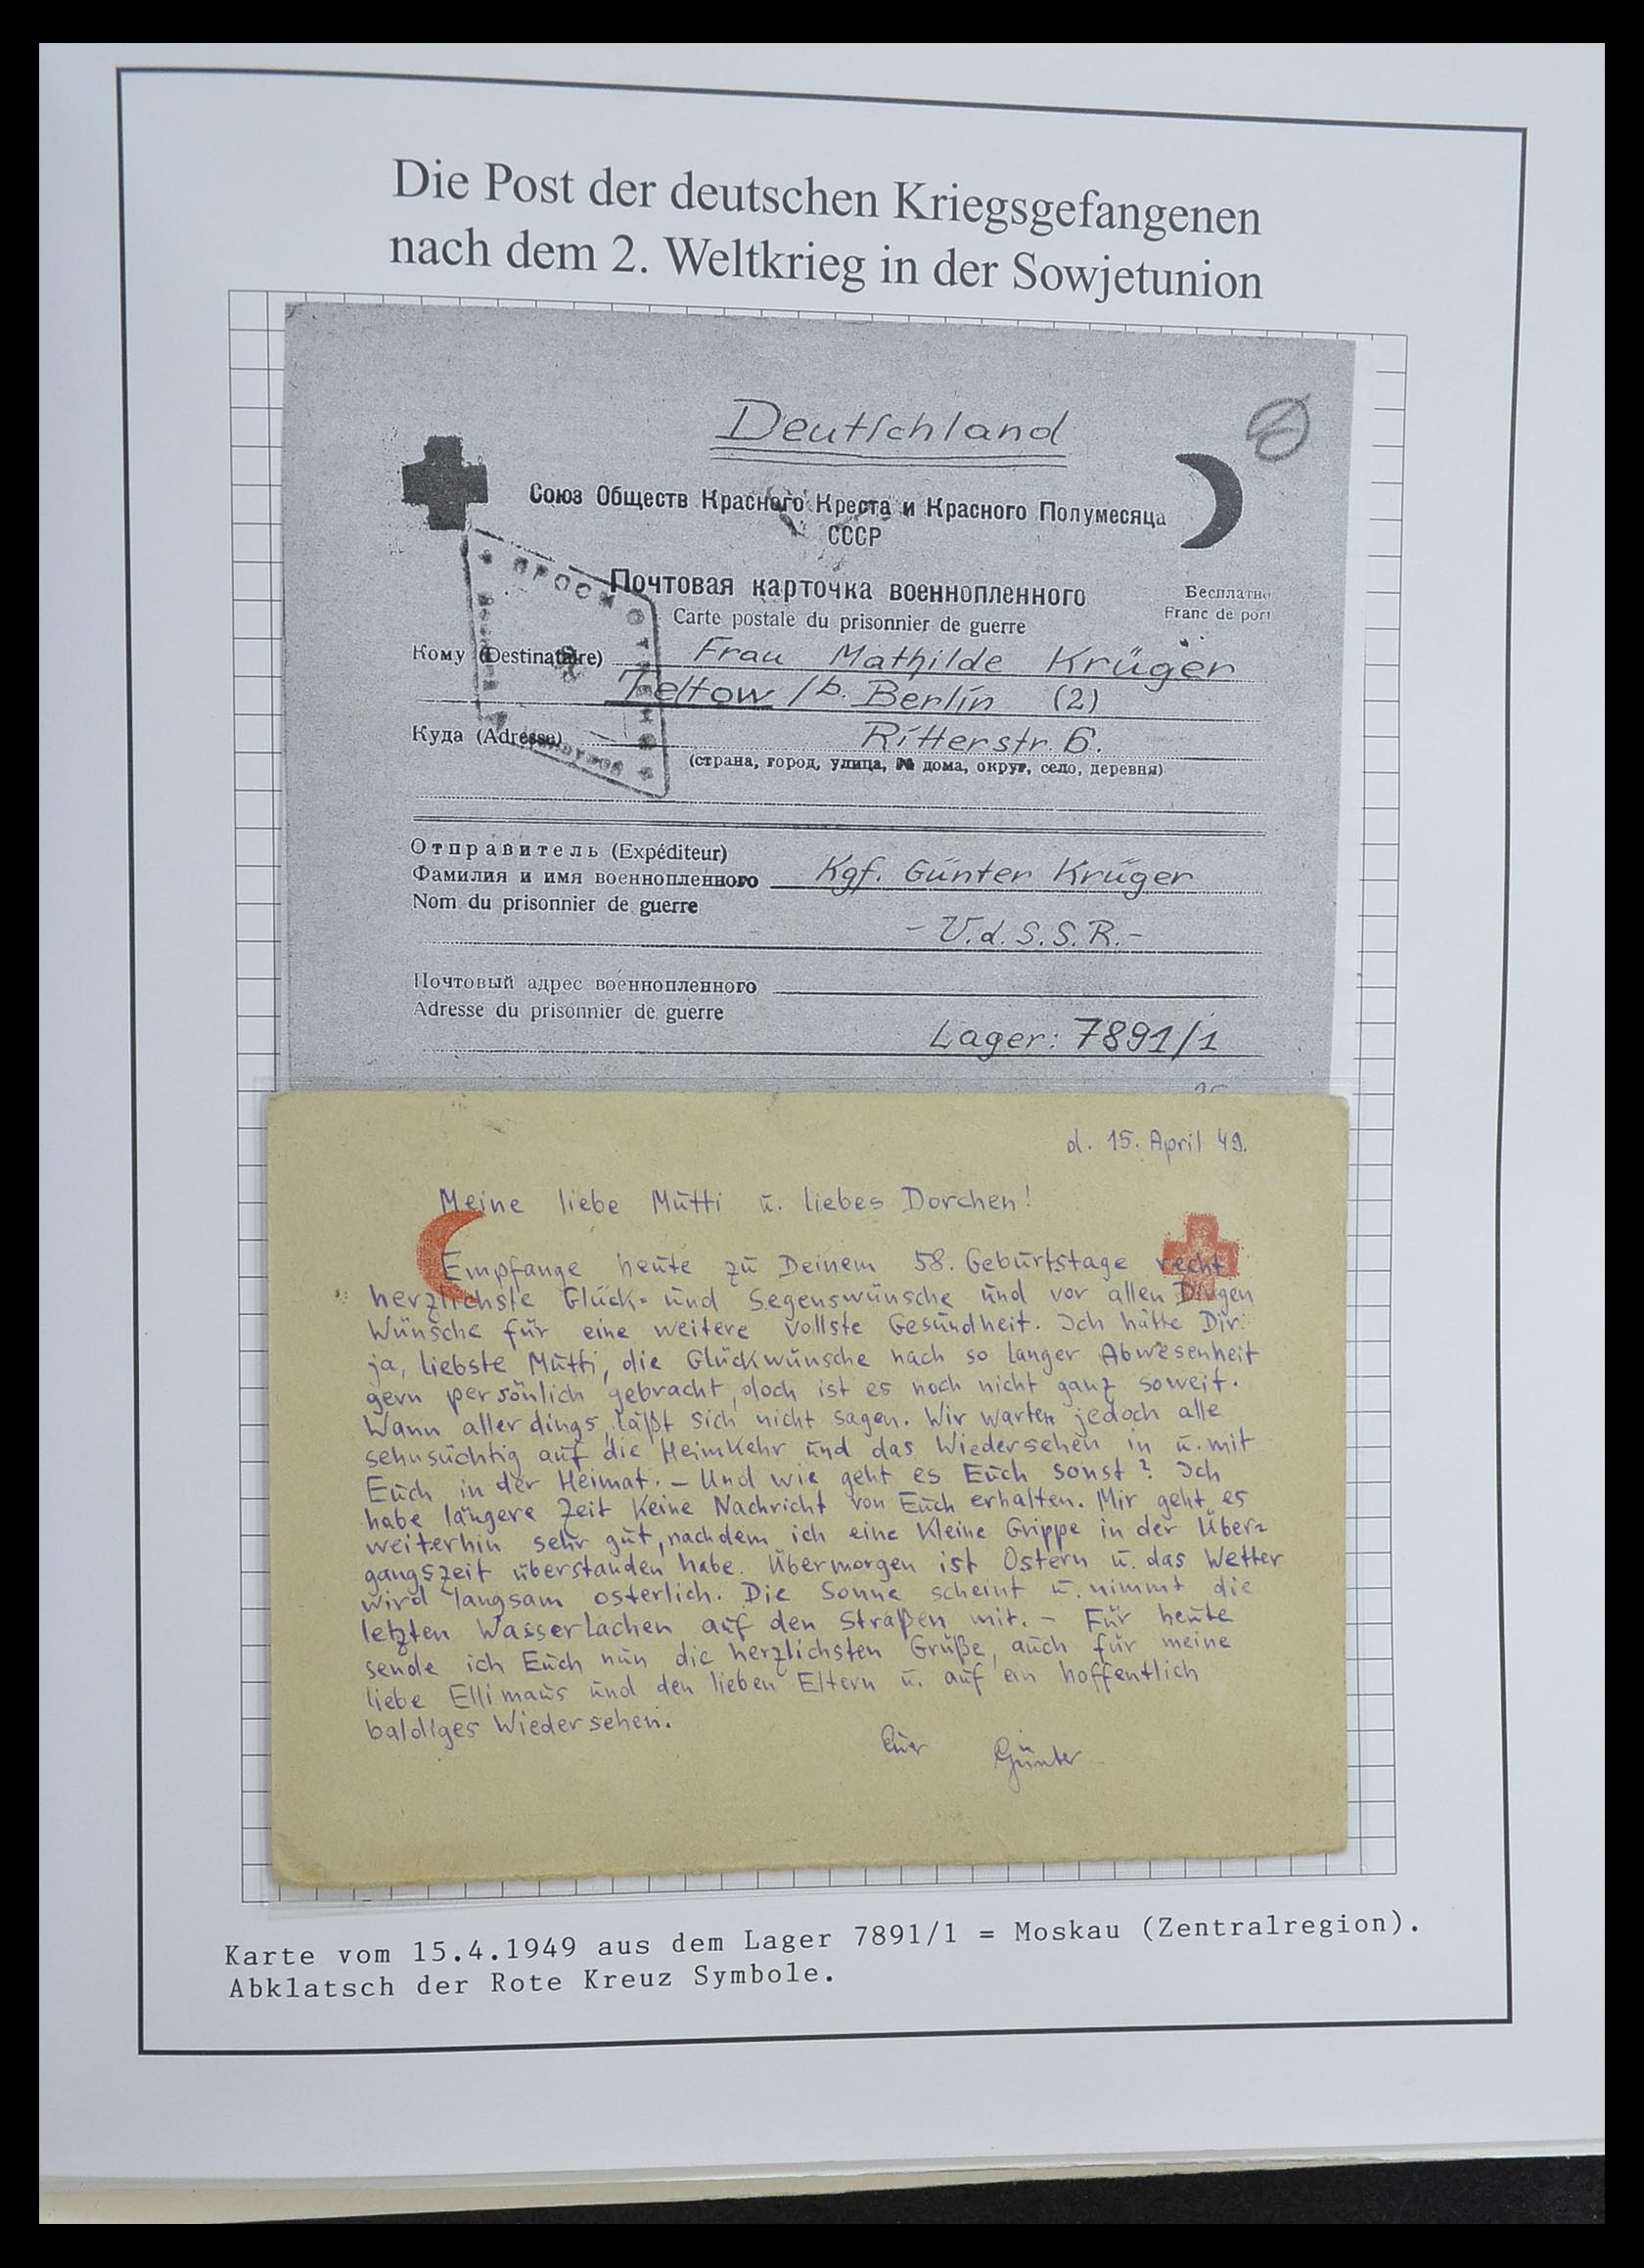 Die Post der deutschen Kriegsgefangenen
nach dem 2. Weltkrieg in der Sowjetunion
Deutschland
Союз Обществ Красного Креста и Красного Полумесяца
СССР
Почтовая карточка военнопленного
Бесплатно
Carte postale du prisonnier de guerre
Franc de port
Кому (Destinataire) Frau Mathilde Krüger
Teltow /b. Berlin (2)
Куда (Adresse) Ritterstr. 6.
(страна, город, улица, № дома, округ, село, деревня)
Отправитель (Expéditeur)
Фамилия и имя военнопленного Kgf. Günter Krüger
Nom du prisonnier de guerre
- U.d.S.S.R.-
Почтовый адрес военнопленного
Adresse du prisonnier de guerre
Lager: 7891/1
d. 15. April 49.
Meine liebe Mutti u. liebes Dorchen!
Empfange heute zu Deinem 58. Geburtstage recht
herzlichste Glück- und Segenswünsche und vor allen Dingen
Wünsche für eine weitere vollste Gesundheit. Ich hätte Dir
ja, liebste Mutti, die Glückwünsche nach so langer Abwesenheit
gern persönlich gebracht, doch ist es noch nicht ganz soweit.
Wann allerdings, läßt sich nicht sagen. Wir warten jedoch alle
sehnsüchtig auf die Heimkehr und das Wiedersehen in u. mit
Euch in der Heimat. – Und wie geht es Euch sonst? Ich
habe längere Zeit keine Nachricht von Euch erhalten. Mir geht es
weiterhin sehr gut, nachdem ich eine kleine Grippe in der Über=
gangszeit überstanden habe. Übermorgen ist Ostern u. das Wetter
wird langsam österlich. Die Sonne scheint u. nimmt die
letzten Wasserlachen auf den Straßen mit. – Für heute
sende ich Euch nun die herzlichsten Grüße, auch für meine
liebe Ellimaus und den lieben Eltern u. auf ein hoffentlich
baldiges Wiedersehen.
Euer Günter
Karte vom 15.4.1949 aus dem Lager 7891/1 = Moskau (Zentralregion).
Abklatsch der Rote Kreuz Symbole.